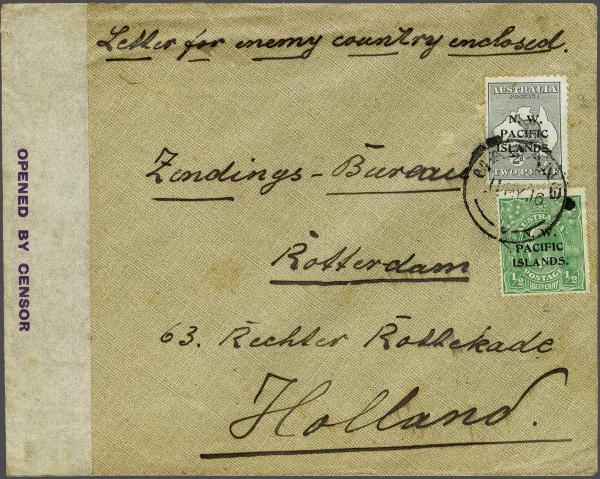 Letter for enemy country enclosed.
AUSTRALIA
POSTAGE
N. W.
PACIFIC
ISLANDS.
2d
TWO PENCE
Zendings - Bureau
N. W.
PACIFIC
ISLANDS.
½ POSTAGE ½
HALFPENNY
Rotterdam
63. Rechter Rottekade
Holland.
OPENED BY CENSOR